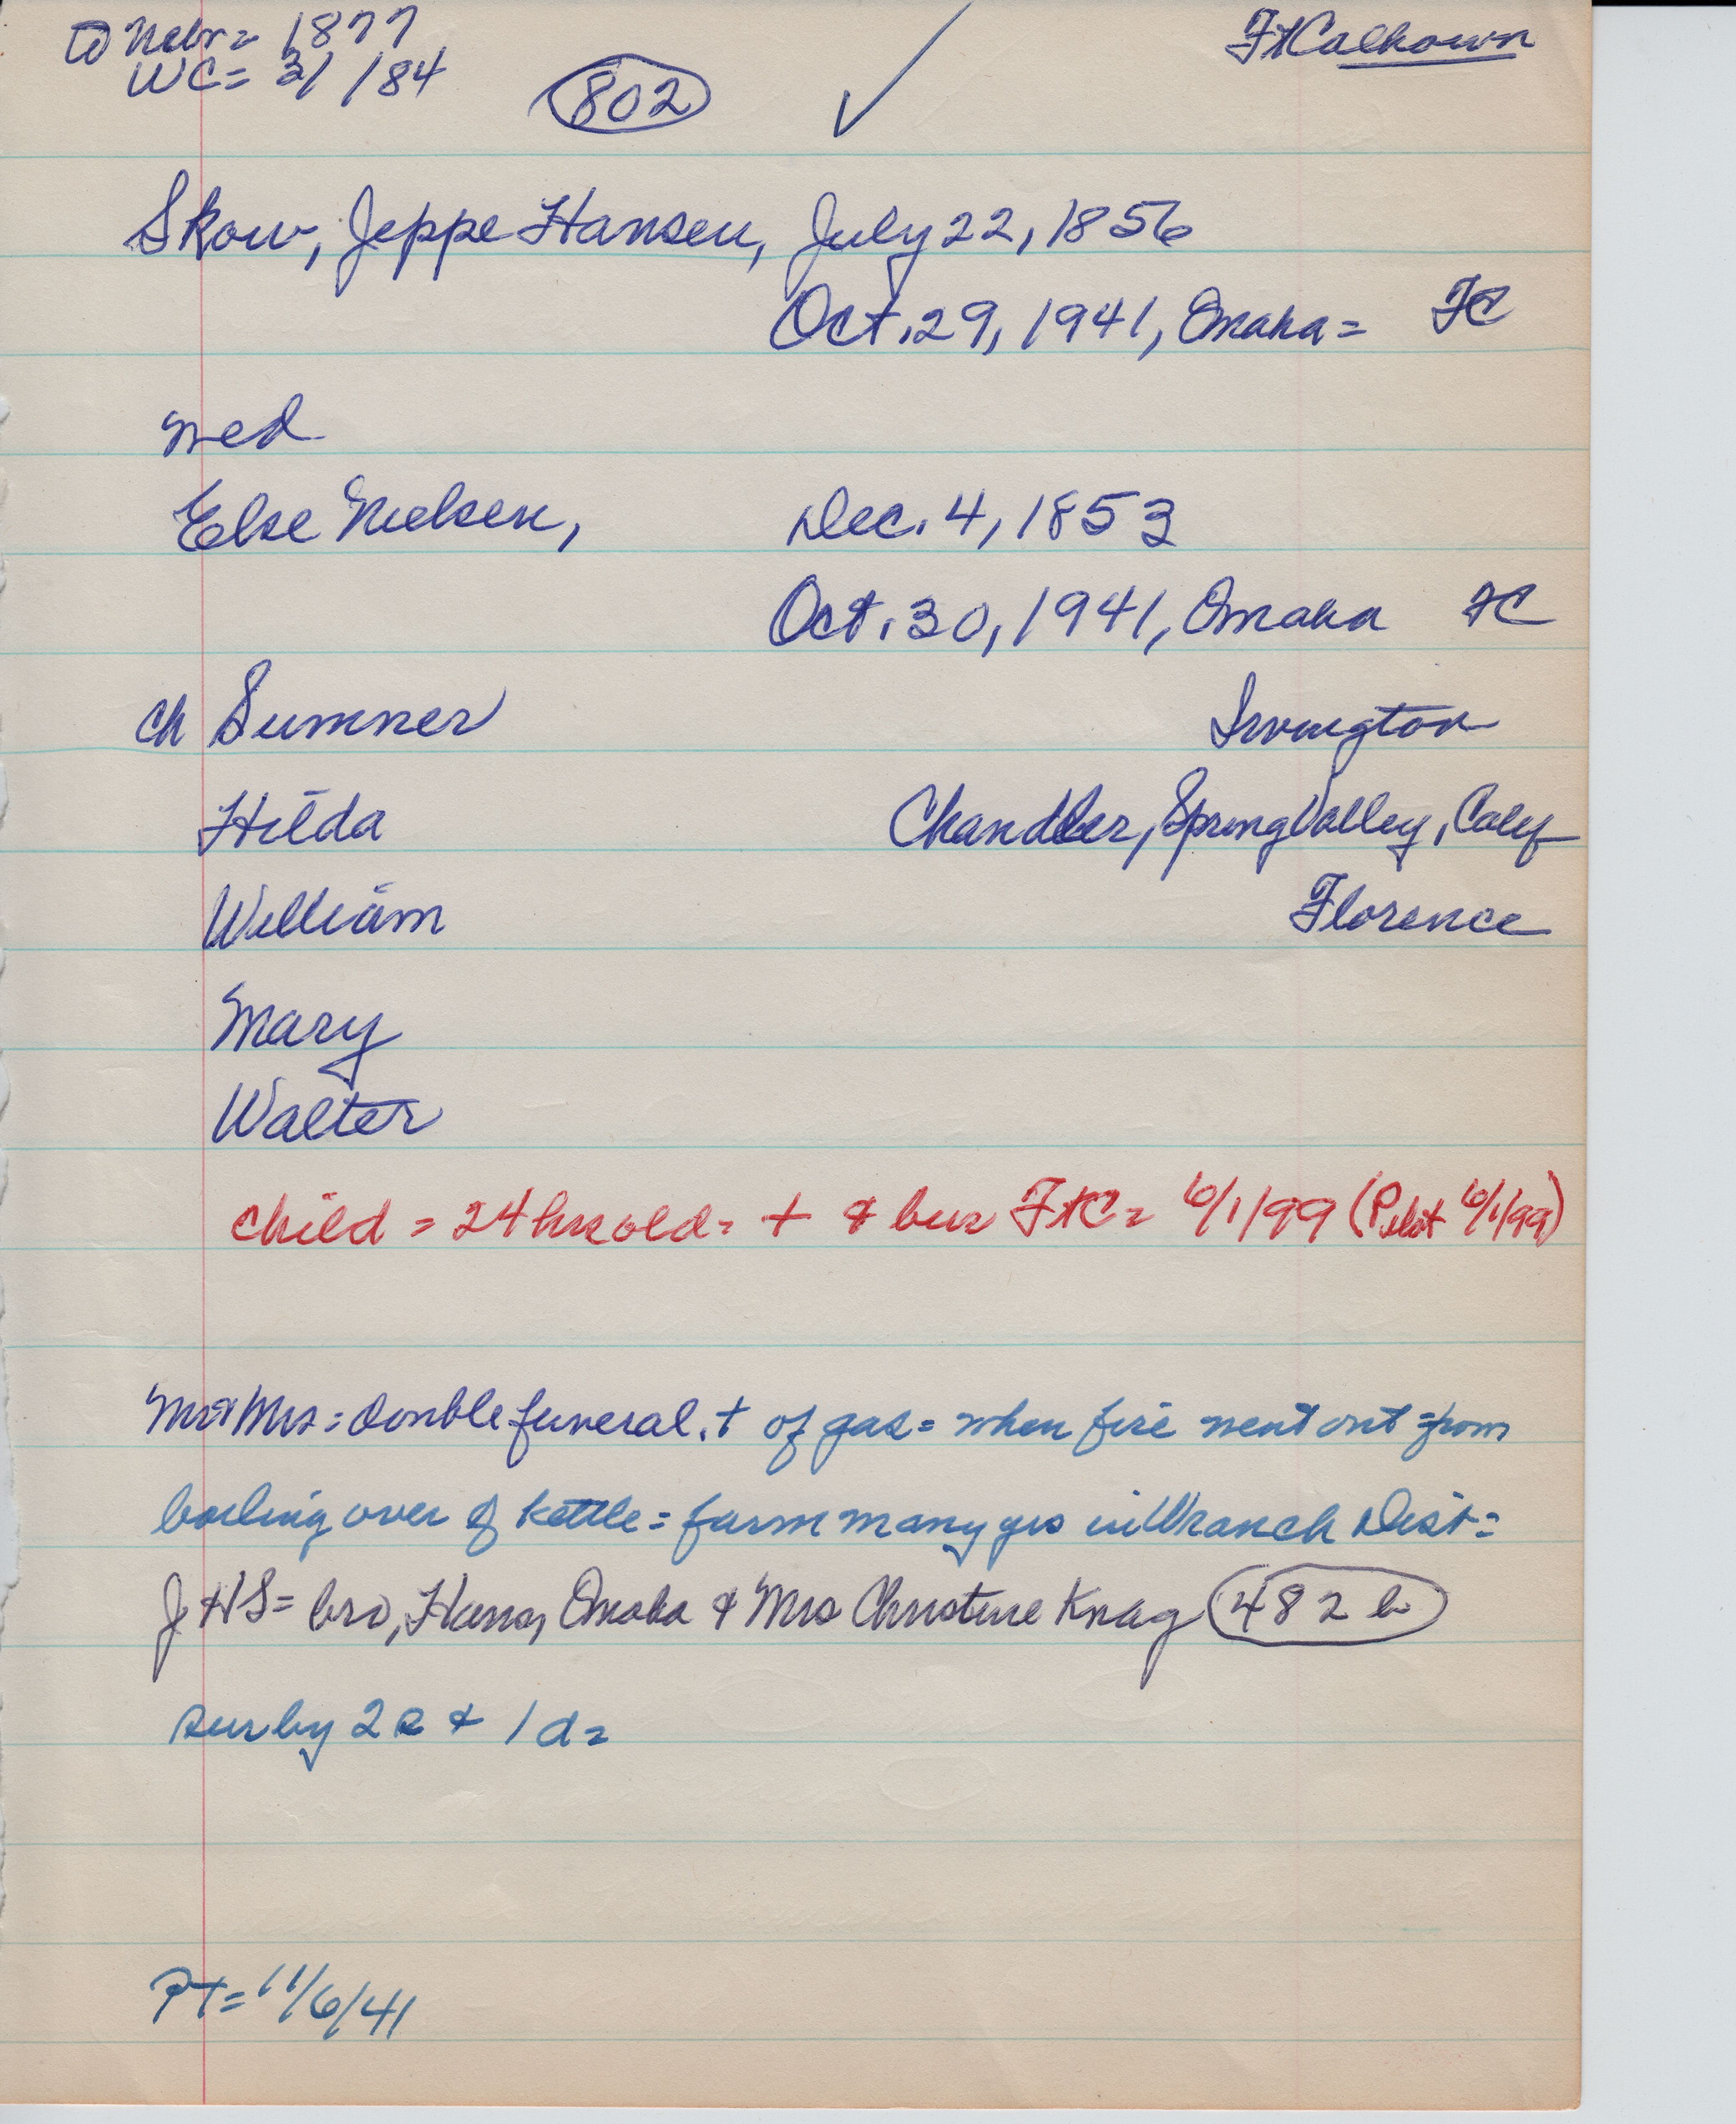 to Nebr = 1877
WC = 3/ /84
802
Ft Calhoun
Skow, Jeppe Hansen, July 22, 1856
Oct. 29, 1941, Omaha = FC
med
Else Nielsen, Dec. 4, 1853
Oct. 30, 1941, Omaha FC
ch Sumner Irvington
Hilda Chandler, Spring Valley, Calif
William Florence
Mary
Walter
child = 24 hrs old = + & bur FtC = 6/1/99 (Pilot 6/1/99)
Mr & Mrs = double funeral. + of gas = when fire went out = from
boiling over of kettle = farm many yrs in Dist =
JHS = bro, Hans, Omaha & Mrs Christine Knag 482 b
sur by 2 s & 1 d =
PT = 11/6/41